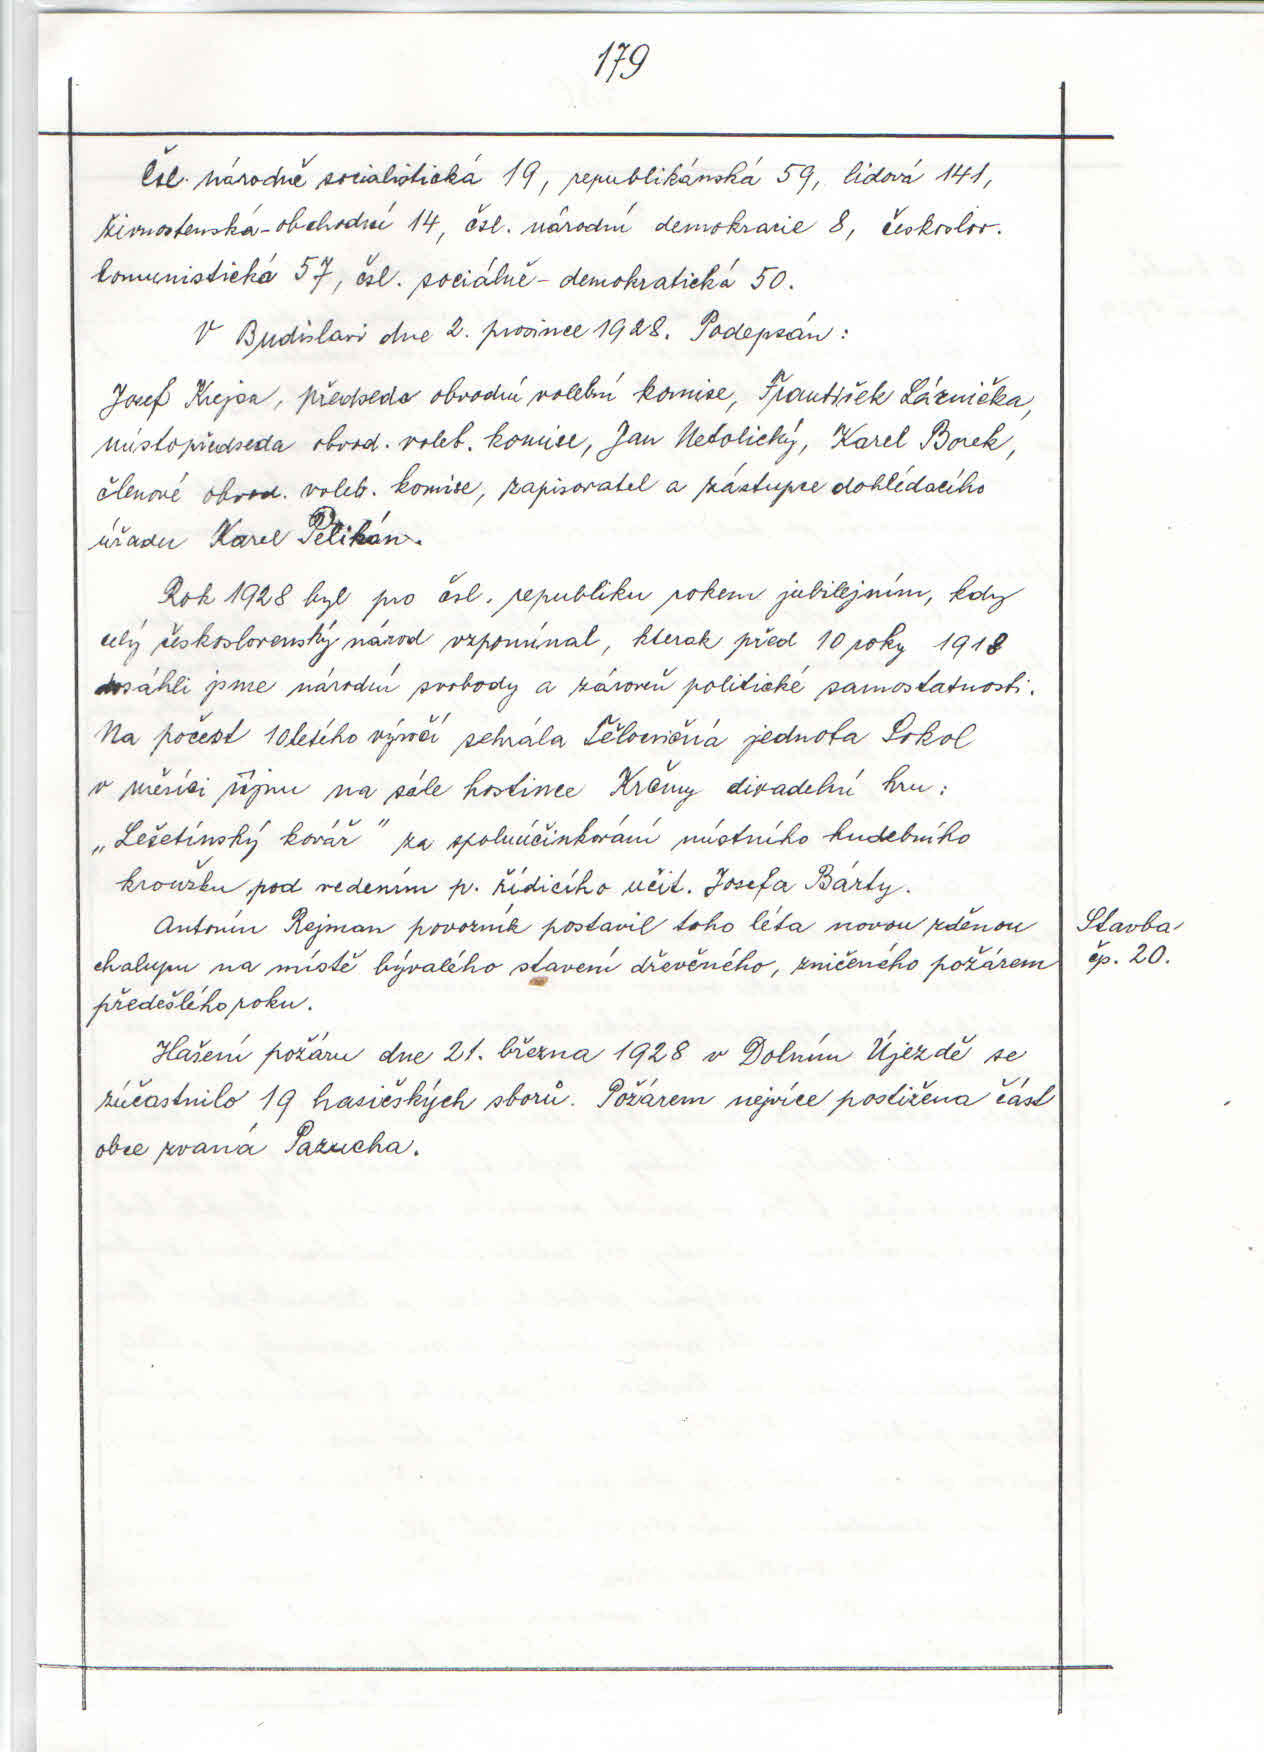 179
Čsl. národně socialistická 19, republikánská 59, lidová 141,
živnostenská-obchodní 14, čsl. národní demokracie 8, českoslov.
komunistická 57, čsl. sociálně-demokratická 50.
V Budislavi dne 2. prosince 1928. Podepsán:
Josef Krejsa, předseda obvodní volební komise, František Láznička,
místopředseda obvod. voleb. komise, Jan Netolický, Karel Borek,
členové obvod. voleb. komise, zapisovatel a zástupce dohlédacího
úřadu Karel Pelikán.
Rok 1928 byl pro čsl. republiku rokem jubilejním, kdy
celý československý národ vzpomínal, kterak před 10 roky 1918
dosáhli jsme národní svobody a zároveň politické samostatnosti.
Na počest 10letého výročí sehrála Tělocvičná jednota Sokol
v měsíci říjnu na sále hostince Krčmy divadelní hru:
„Lešetínský kovář" za spoluúčinkování místního hudebního
kroužku pod vedením p. řídicího učit. Josefa Bárty.
Antonín Rejman povozník postavil toho léta novou zděnou
chalupu na místě bývalého stavení dřevěného, zničeného požárem
předešlého roku.
Stavba
čp. 20.
Hašení požáru dne 21. března 1928 v Dolním Újezdě se
zúčastnilo 19 hasičských sborů. Požárem nejvíce postižena část
obce zvaná Pazucha.